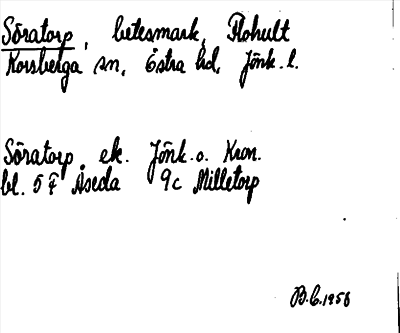 Söratorp, betesmark, Flohult
Korsberga sn, Östra hd, Jönk. l.
Söratorp ek. Jönk. o. Kron.
bl. 5 F Åseda 9c Milletorp
B.C. 1956